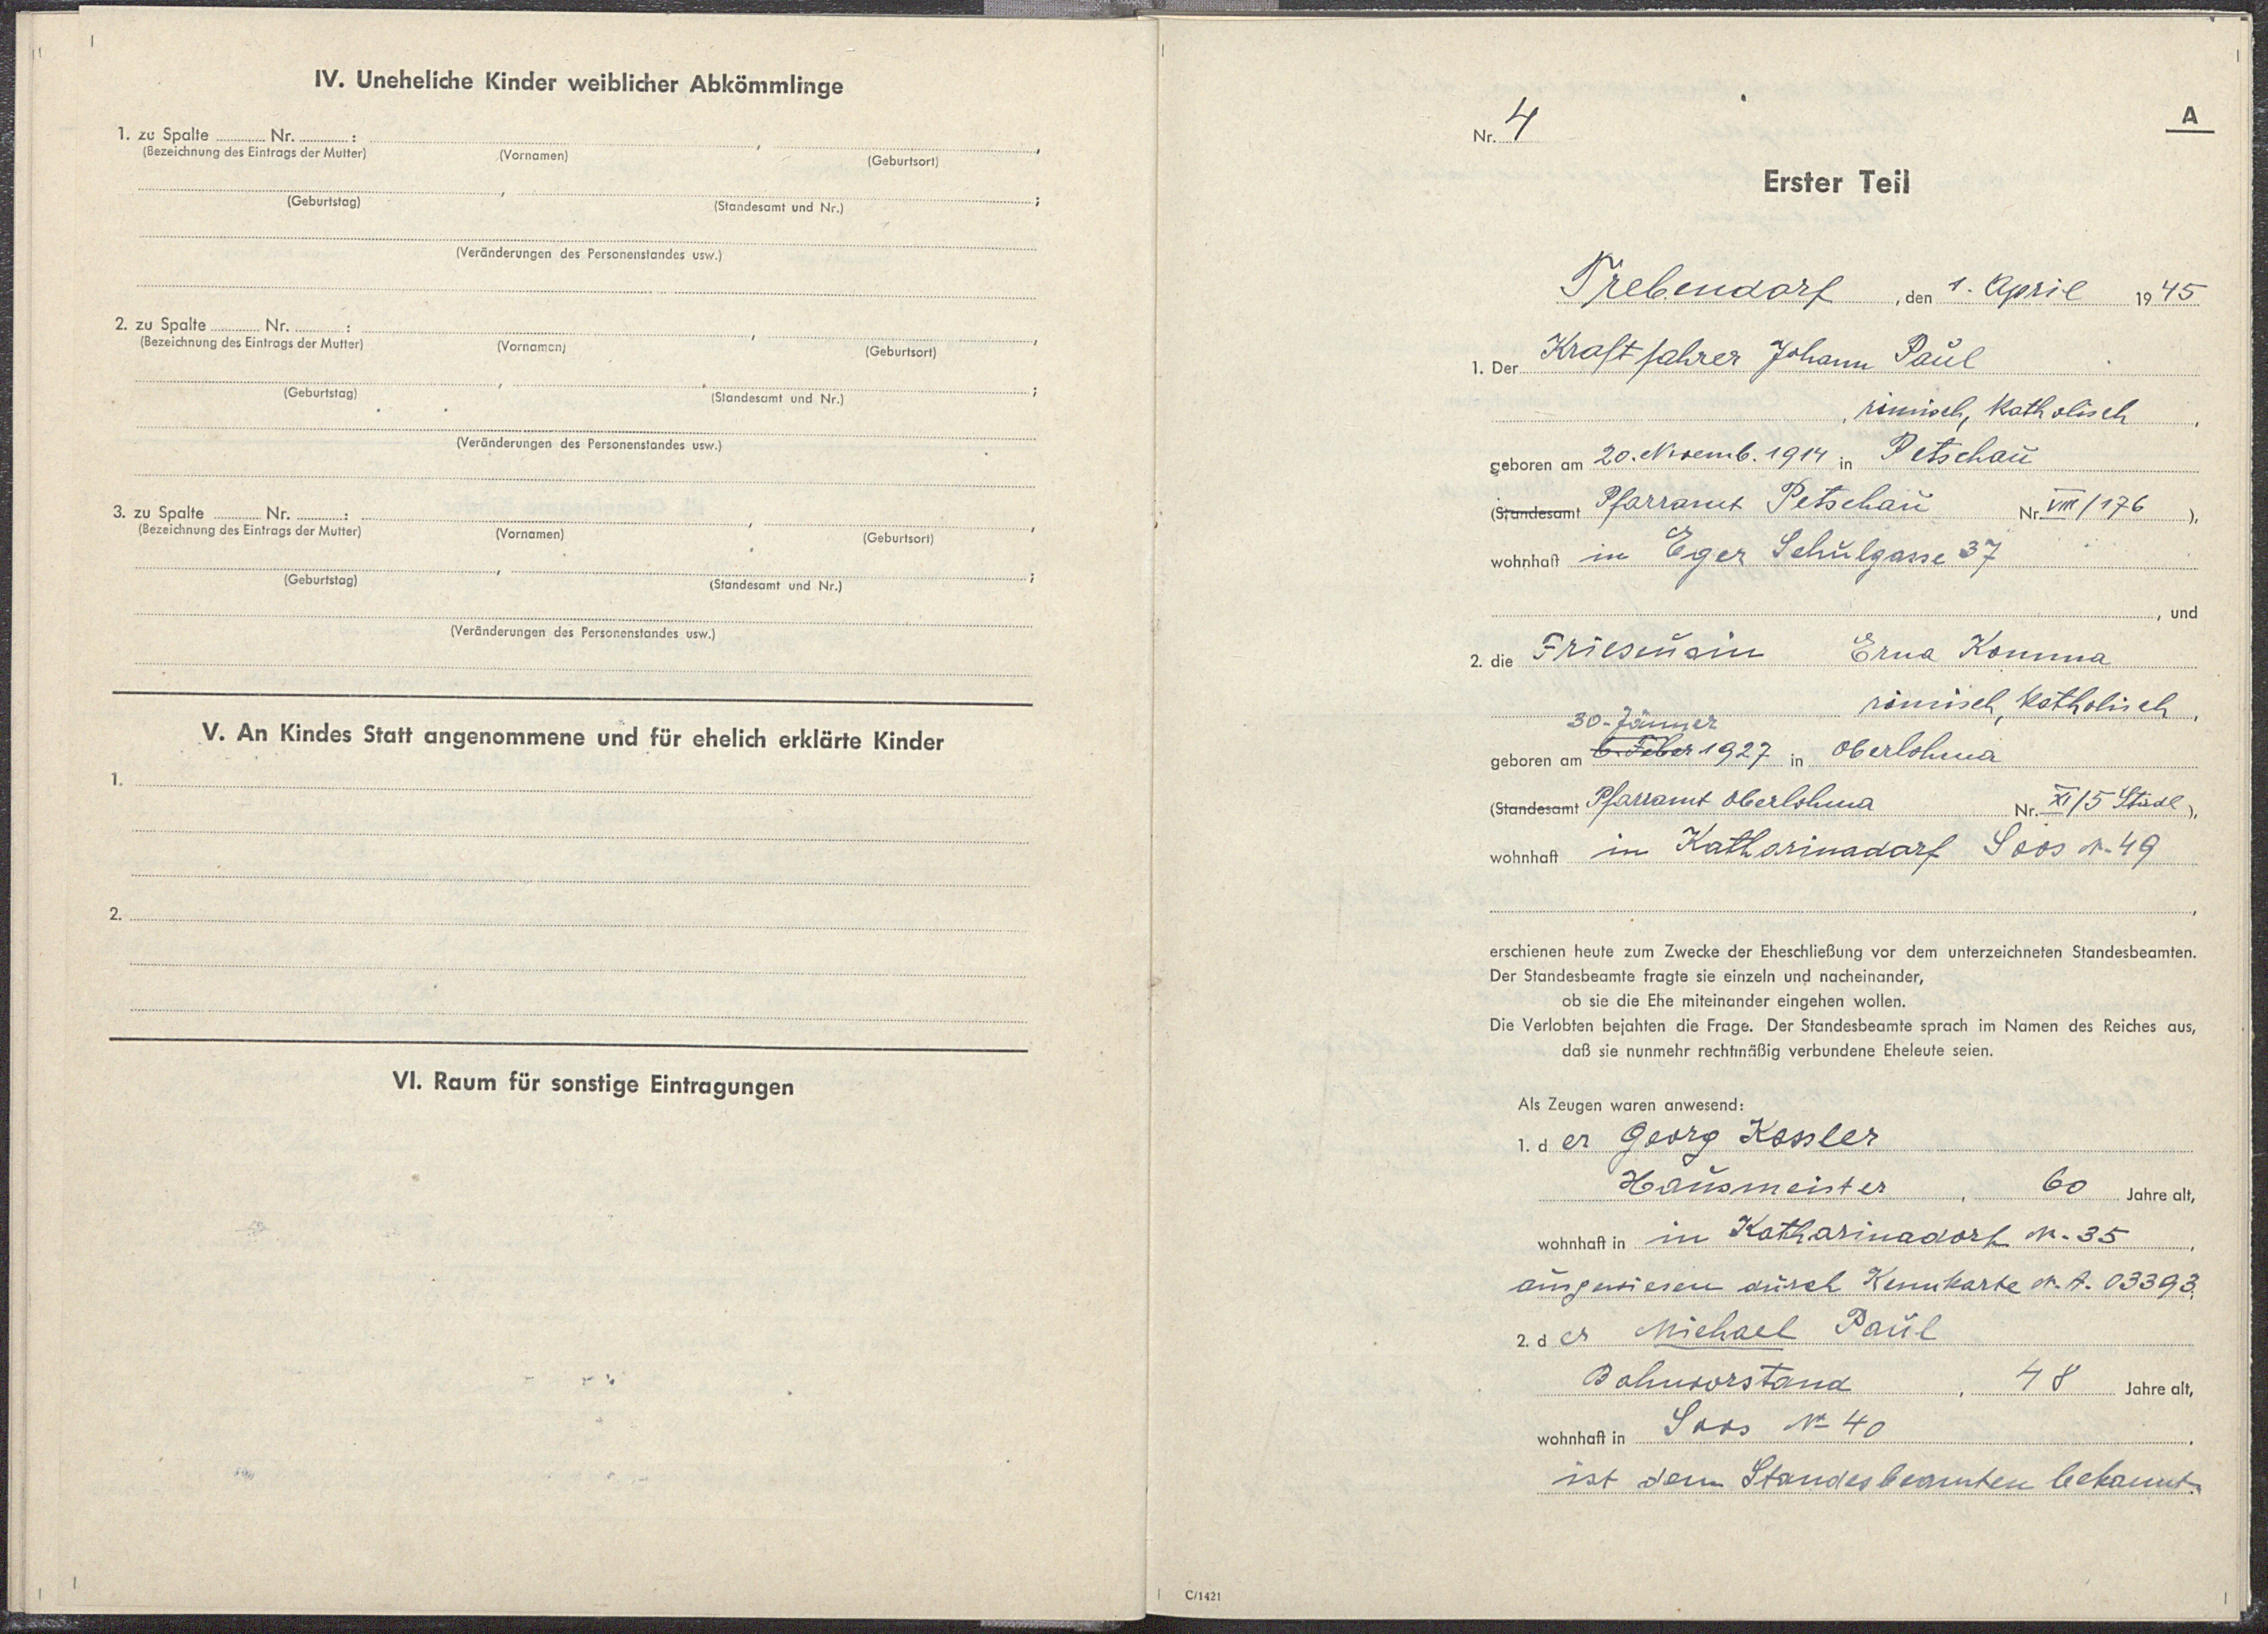 IV. Uneheliche Kinder weiblicher Abkömmlinge
1. zu Spalte ........ Nr. ........ :
(Bezeichnung des Eintrags der Mutter) (Vornamen) , (Geburtsort) ,
(Geburtstag) , (Standesamt und Nr.) ;
(Veränderungen des Personenstandes usw.)
2. zu Spalte ........ Nr. ........ :
(Bezeichnung des Eintrags der Mutter) (Vornamen) , (Geburtsort) ,
(Geburtstag) , (Standesamt und Nr.) ;
(Veränderungen des Personenstandes usw.)
3. zu Spalte ........ Nr. ........ :
(Bezeichnung des Eintrags der Mutter) (Vornamen) , (Geburtsort) ,
(Geburtstag) , (Standesamt und Nr.) ;
(Veränderungen des Personenstandes usw.)
V. An Kindes Statt angenommene und für ehelich erklärte Kinder
1.
2.
VI. Raum für sonstige Eintragungen
A
Nr. 4
Erster Teil
Trebendorf , den 1. April 1945
1. Der Kraftfahrer Johann Paul
, römisch, katholisch ,
geboren am 20. Novemb. 1914 in Petschau
(Standesamt Pfarramt Petschau Nr. VIII/176 ),
wohnhaft in Eger Schulgasse 37
, und
2. die Friseuain Erna Komma
römisch, katholisch ,
30. Jänner
geboren am 6. Feber 1927 in Oberlohma
(Standesamt Pfarramt Oberlohma Nr. XI/5 ),
wohnhaft in Katharinadorf Soos N. 49
,
erschienen heute zum Zwecke der Eheschließung vor dem unterzeichneten Standesbeamten.
Der Standesbeamte fragte sie einzeln und nacheinander,
ob sie die Ehe miteinander eingehen wollen.
Die Verlobten bejahten die Frage. Der Standesbeamte sprach im Namen des Reiches aus,
daß sie nunmehr rechtmäßig verbundene Eheleute seien.
Als Zeugen waren anwesend:
1. d er Georg Kessler
Hausmeister , 60 Jahre alt,
wohnhaft in in Katharinadorf N. 35 ,
ausgewiesen durch Kennkarte N. A. 03393.
2. d er Michael Paul
Bahnvorstand , 48 Jahre alt,
wohnhaft in Soos N 40 .
ist dem Standesbeamten bekannt.
C/1421